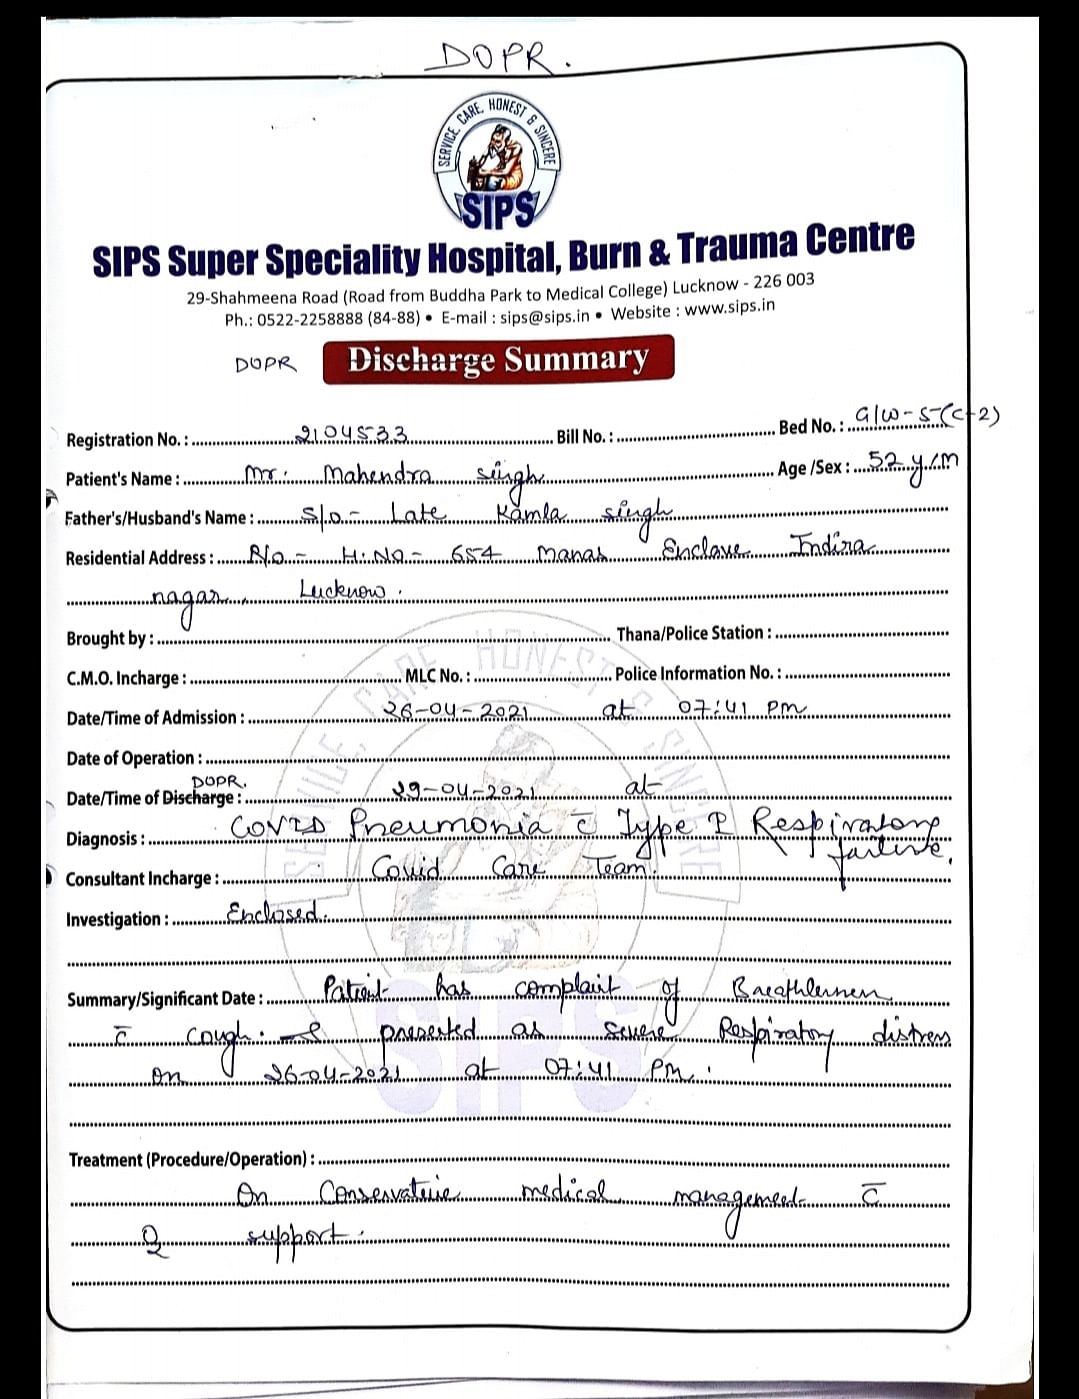 DOPR.
SERVICE, CARE, HONEST & SINCERE
SIPS
SIPS Super Speciality Hospital, Burn & Trauma Centre
29-Shahmeena Road (Road from Buddha Park to Medical College) Lucknow - 226 003
Ph.: 0522-2258888 (84-88) • E-mail : sips@sips.in • Website : www.sips.in
DOPR Discharge Summary
Registration No. : 2104533 Bill No. : Bed No. : G/W-5-(C-2)
Patient's Name : Mr. Mahendra Singh Age /Sex : 52 y/M
Father's/Husband's Name : S/o.- Late Kamla Singh
Residential Address : R/o.- H.No.- 654 Manas Enclave Indira
nagar, Lucknow.
Brought by : Thana/Police Station :
C.M.O. Incharge : MLC No. : Police Information No. :
Date/Time of Admission : 26-04-2021 at 07:41 PM
Date of Operation :
DOPR.
Date/Time of Discharge : 29-04-2021 at
Diagnosis : COVID Pneumonia c̄ Type I Respiratory
failure.
Consultant Incharge : Covid Care Team.
Investigation : Enclosed.
Summary/Significant Date : Patient has complaint of
c̄ cough. as severe Respiratory distress
on 26-04-2021 at 07:41 PM.
Treatment (Procedure/Operation) :
On Conservative medical management c̄
O2 support.